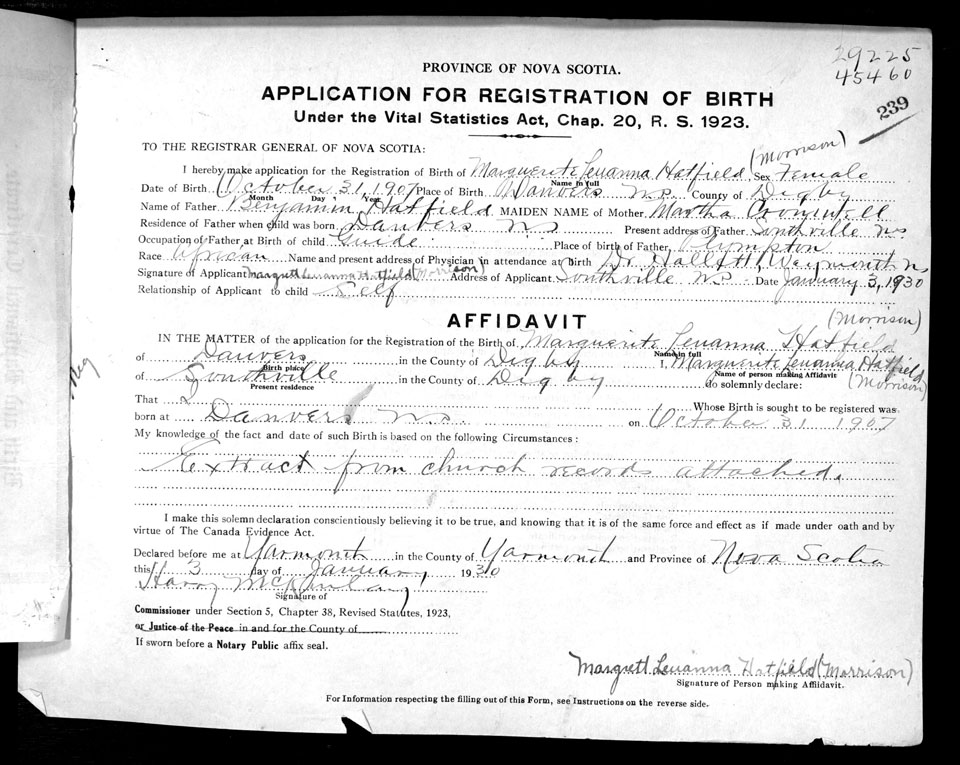 29225
45460
239
PROVINCE OF NOVA SCOTIA.
APPLICATION FOR REGISTRATION OF BIRTH
Under the Vital Statistics Act, Chap. 20, R. S. 1923.
TO THE REGISTRAR GENERAL OF NOVA SCOTIA:
(Morrison)
I hereby make application for the Registration of Birth of Marguerite Leuanna Hatfield Sex Female
Name in full
Date of Birth October 31, 1907 Place of Birth Danvers N.S. County of Digby
Month Day Year
Name of Father Benjamin Hatfield MAIDEN NAME of Mother Martha Cromwell
Residence of Father when child was born Danvers N.S. Present address of Father Southville N.S.
Occupation of Father at Birth of child Guide Place of birth of Father, Plympton
Race African Name and present address of Physician in attendance at birth Dr Hallett, Weymouth N.S.
Signature of Applicant Margrett Leuanna Hatfield (Morrison) Address of Applicant Southville N.S. Date January 3, 1930
Relationship of Applicant to child Self
AFFIDAVIT
(Morrison)
IN THE MATTER of the application for the Registration of the Birth of Marguerite Leuanna Hatfield
Name in full
of Danvers in the County of Digby I, Marguerite Leuanna Hatfield
Birth place Name of person making Affidavit
of Southville in the County of Digby do solemnly declare: (Morrison)
Present residence
That I Whose Birth is sought to be registered was
born at Danvers N.S. on October 31 1907
My knowledge of the fact and date of such Birth is based on the following Circumstances :
Extract from church records attached.
I make this solemn declaration conscientiously believing it to be true, and knowing that it is of the same force and effect as if made under oath and by
virtue of The Canada Evidence Act.
Declared before me at Yarmouth in the County of Yarmouth and Province of Nova Scotia
this 3 day of January 1930
Harry
Signature of
Commissioner under Section 5, Chapter 38, Revised Statutes, 1923,
or Justice of the Peace in and for the County of
If sworn before a Notary Public affix seal.
Margrett Leuanna Hatfield (Morrison)
Signature of Person making Affidavit.
For Information respecting the filling out of this Form, see Instructions on the reverse side.